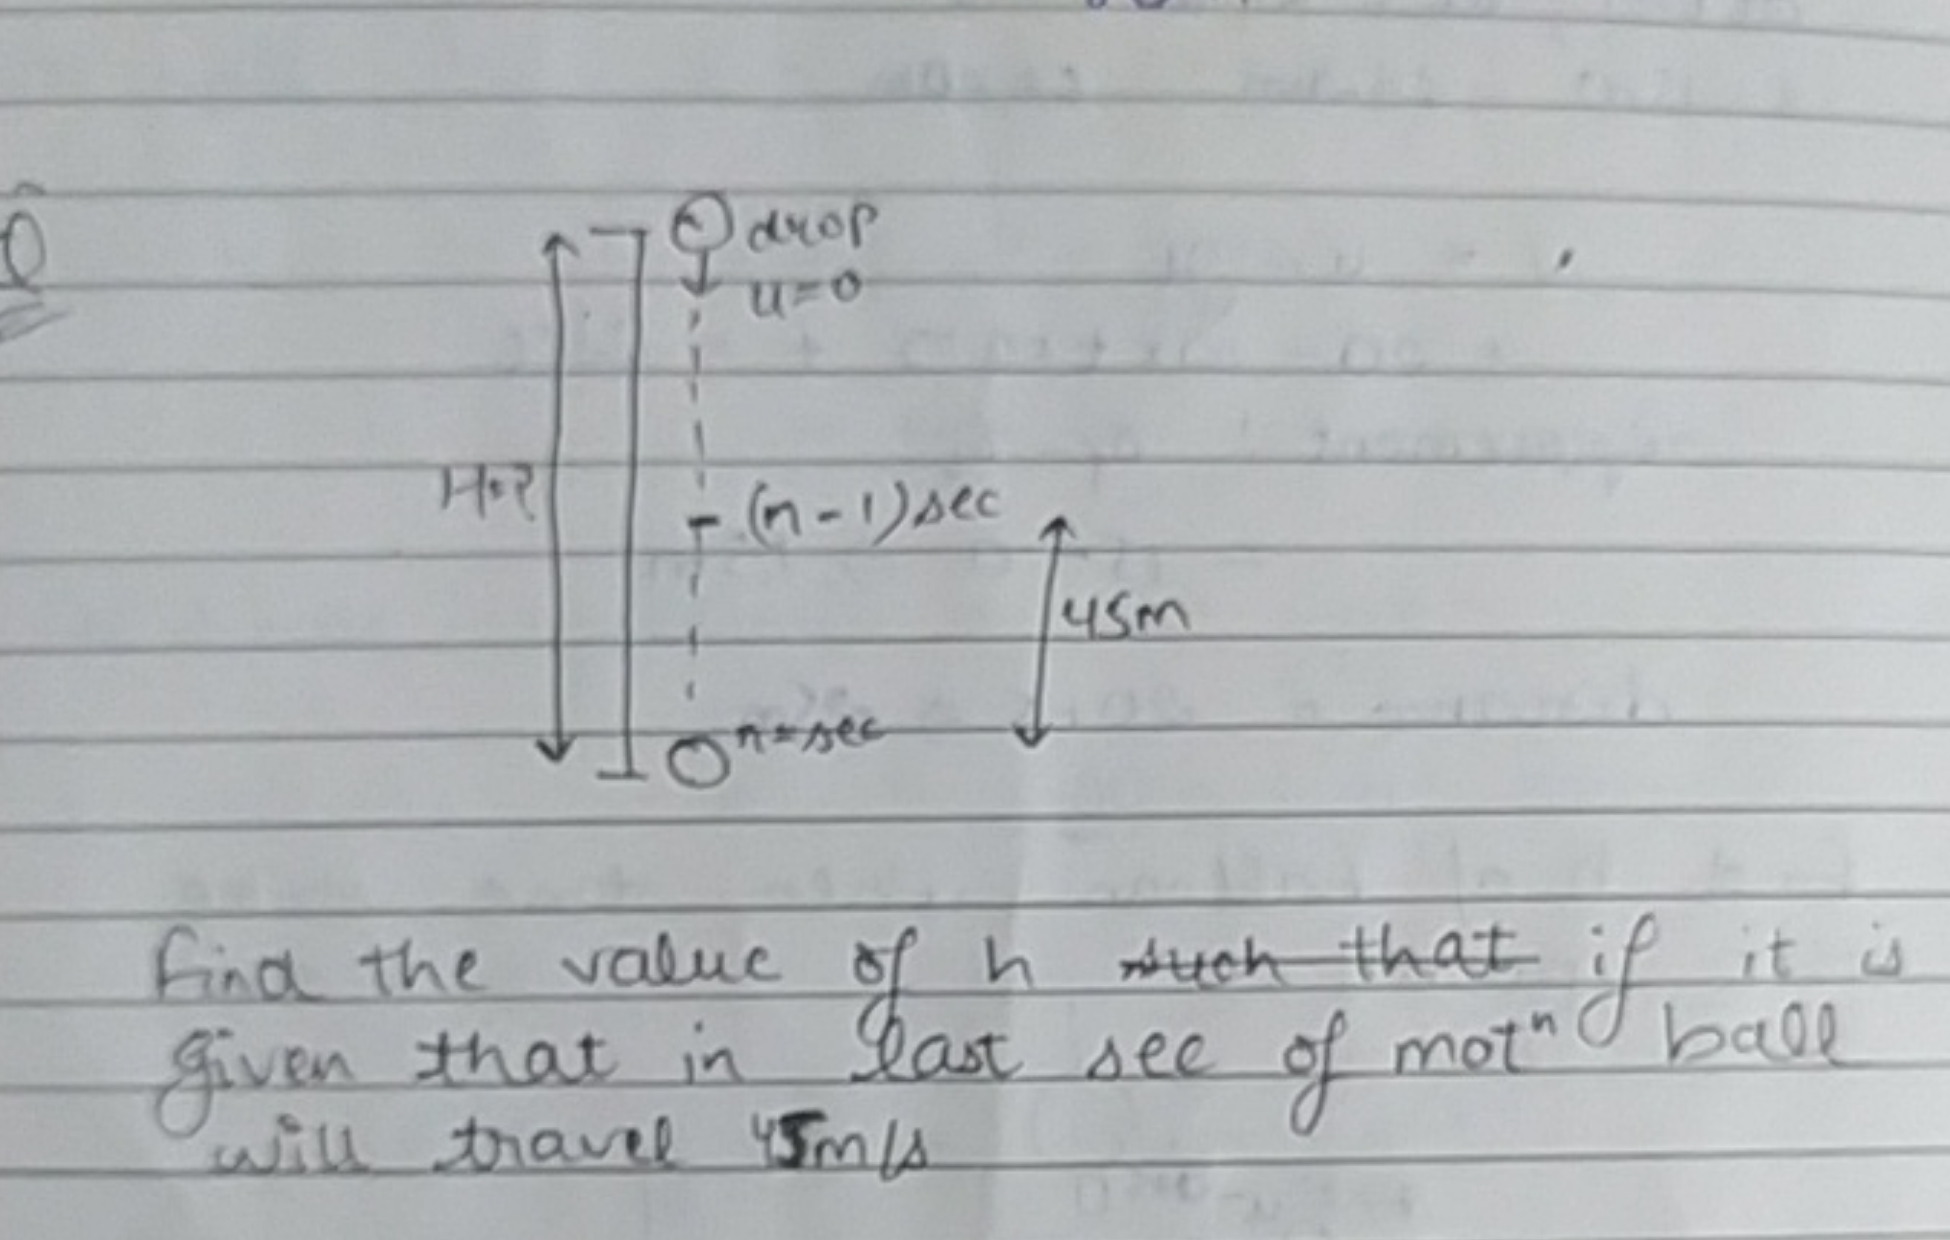 Q
drop
u=0
H=?
(n-1)sec
45m
n=sec
find the value of h such that if it is
given that in last sec of motⁿ ball
will travel 45m/s